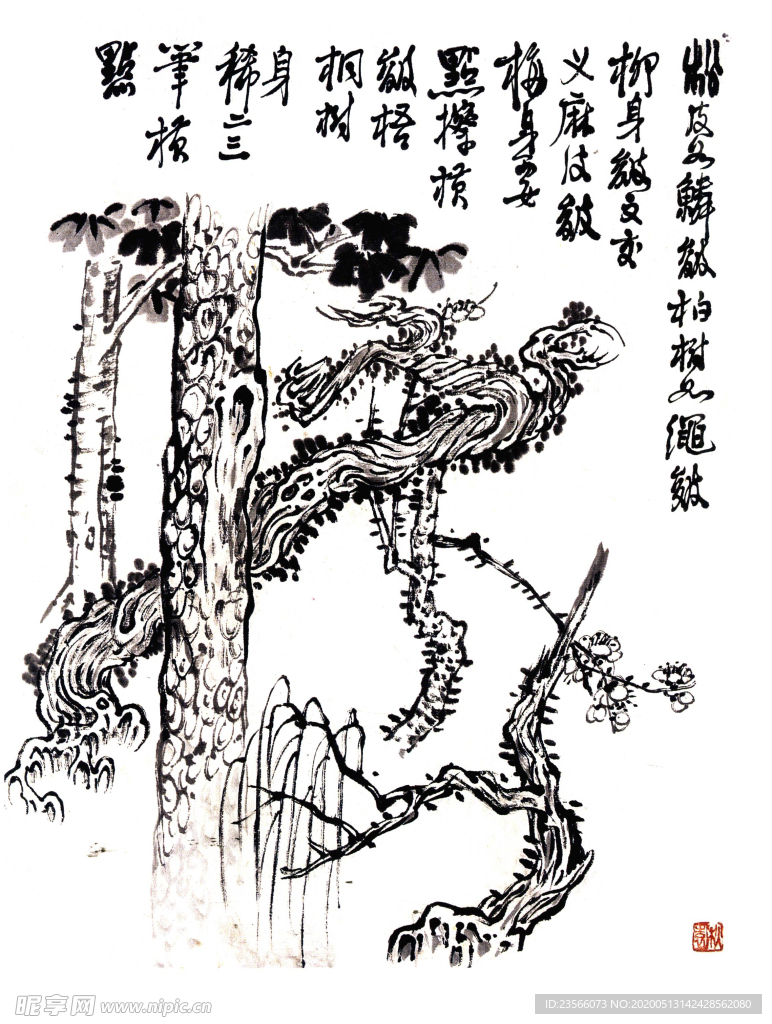 松皮如鱗皴柏樹如繩皴
柳身皴文交
叉麻皮皴
梅身要
點擦橫
皴梧
桐樹
身
稀二三
筆橫
點
昵享网 www.nipic.cn
ID:23566073 NO:20200513142428562080